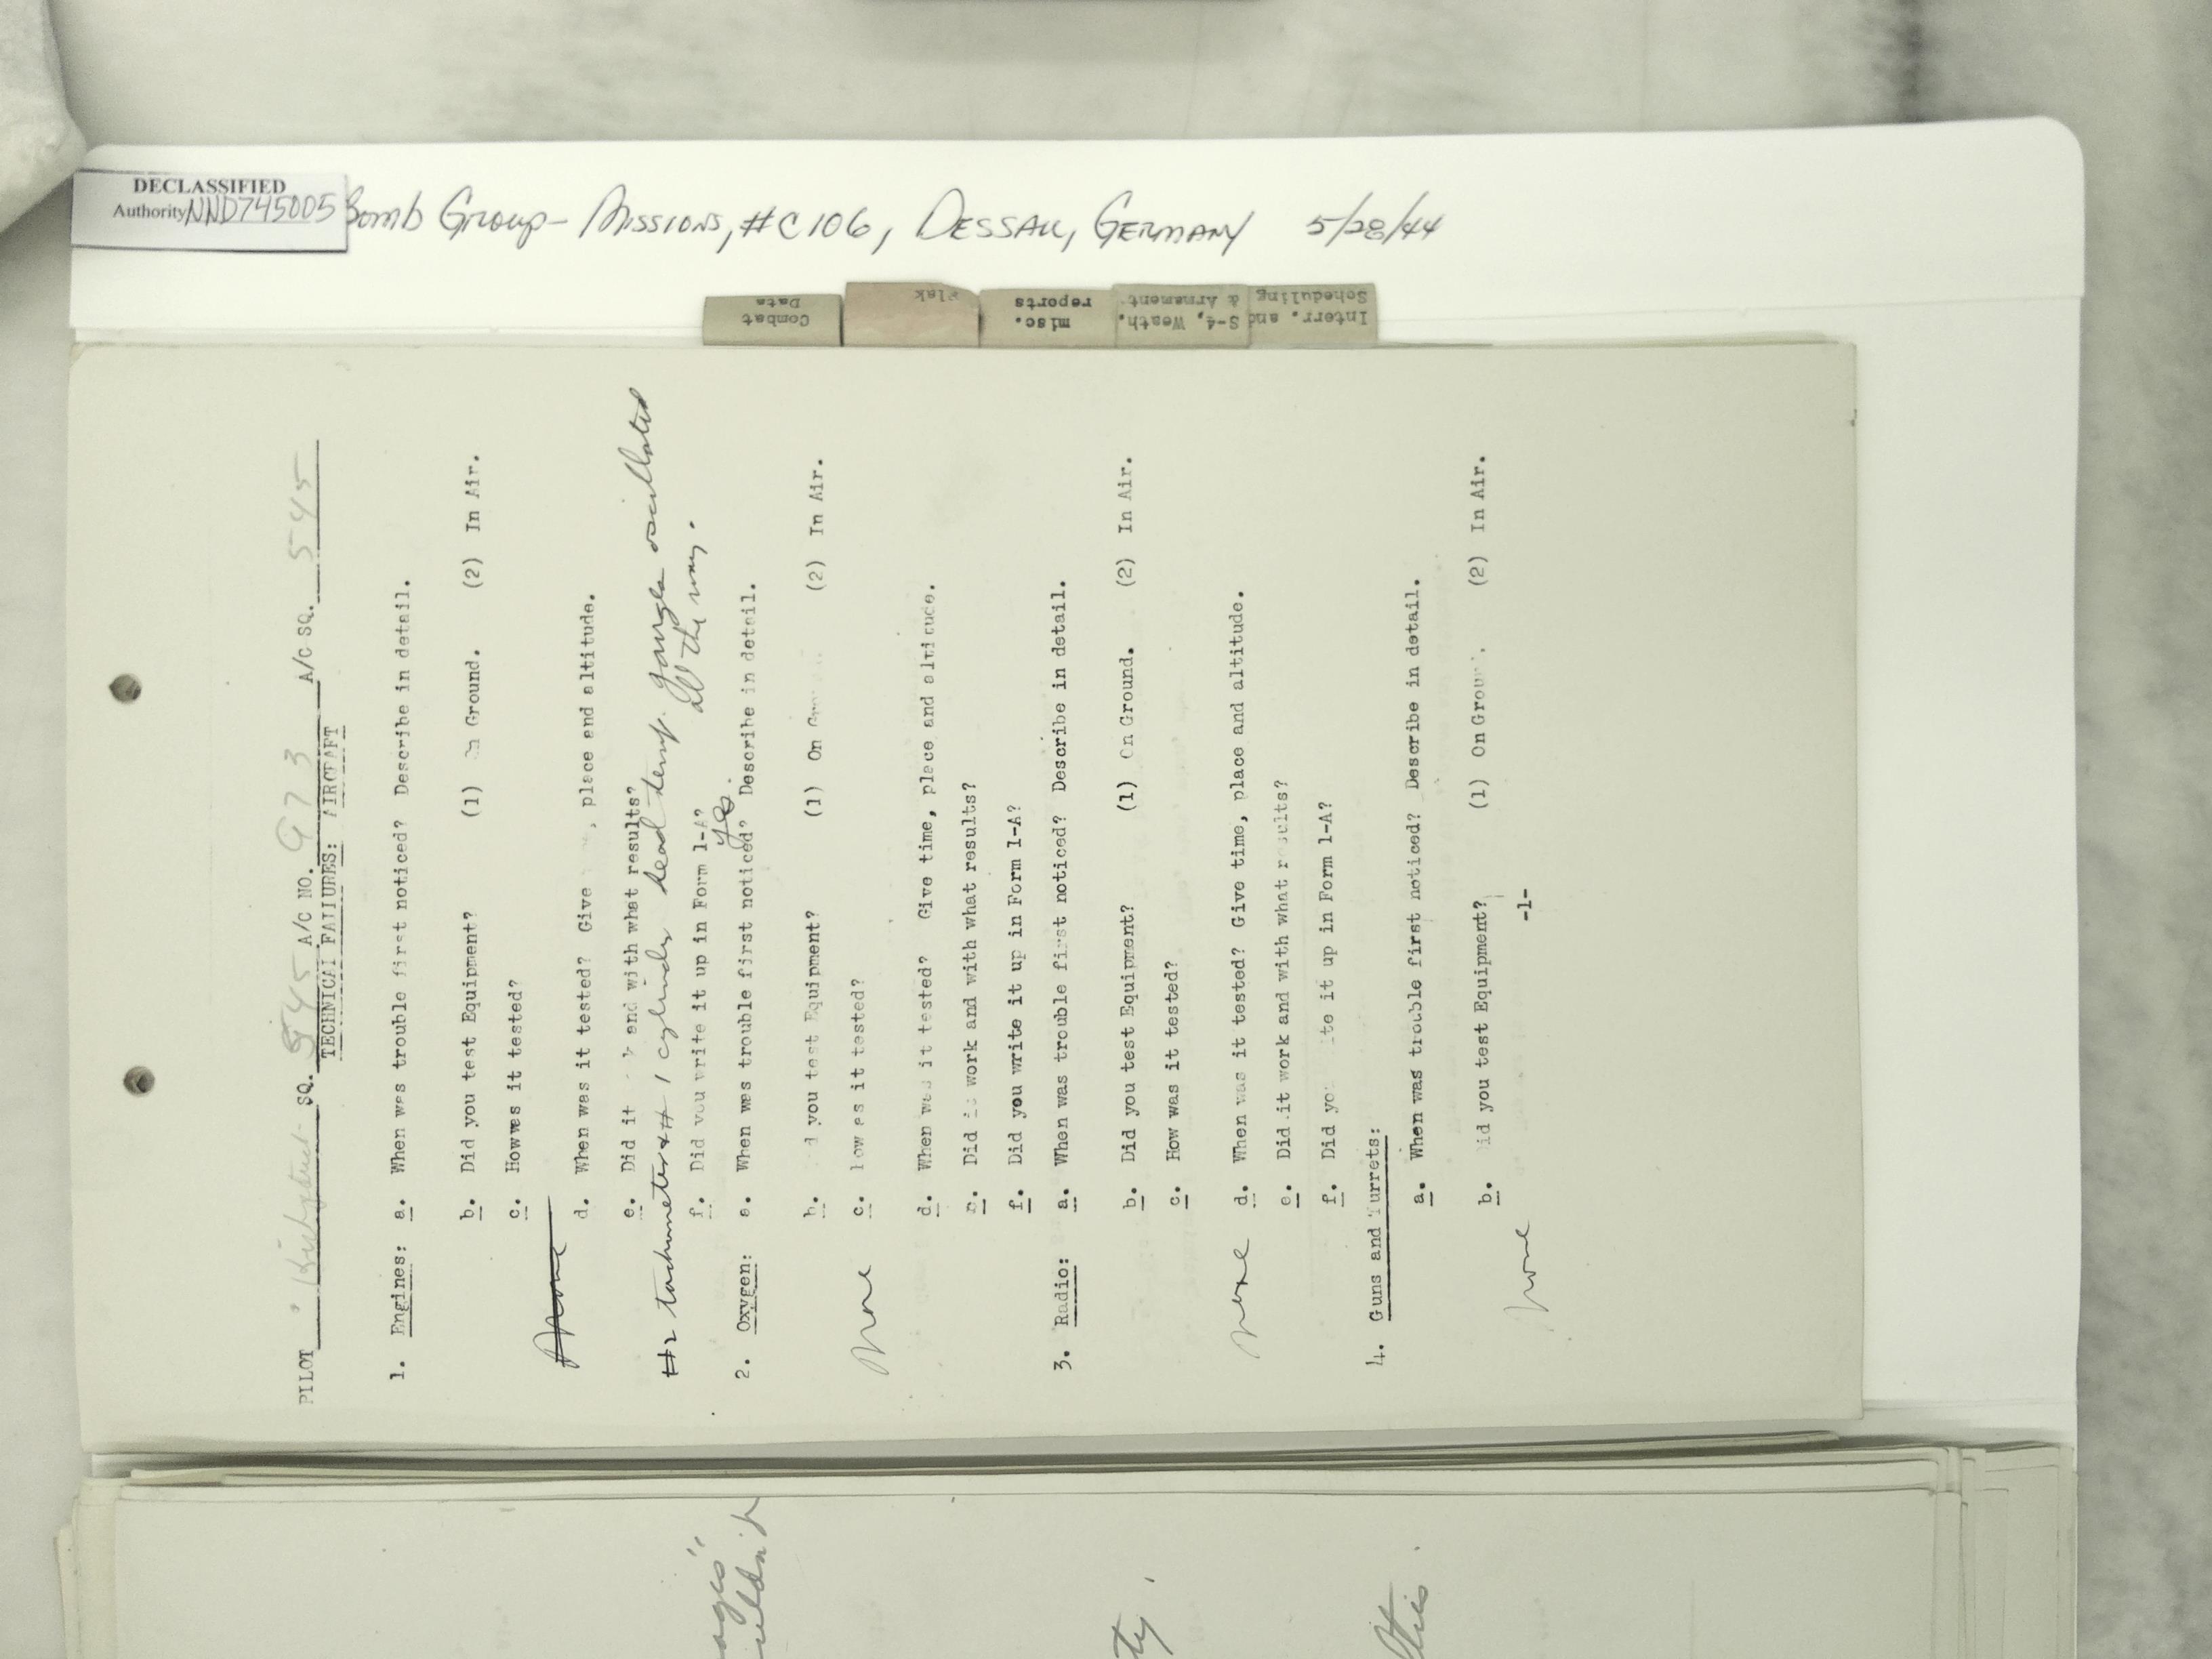 DECLASSIFIED
Authority NND745005
Bomb Group- Missions, #C106, Dessau, Germany 5/28/44
Combat
Data
Flak
misc.
reports
S-4, Weath.
& Armament
Interr. and
Scheduling
PILOT SQ. 545 A/C NO. 973 A/C SQ. 545
TECHNICAL FAILURES: AIRCRAFT
1. Engines: a. When was trouble first noticed? Describe in detail.
b. Did you test Equipment? (1) On Ground. (2) In Air.
c. How was it tested?
None
d. When was it tested? Give , place and altitude.
e. Did it and with what results?
#2 tachometer & # 1 cylinder head temp. gauges oscillated
all the way.
f. Did you write it up in Form 1-A?
yes
2. Oxygen: a. When was trouble first noticed? Describe in detail.
b. d you test Equipment? (1) On Gr (2) In Air.
c. How as it tested?
None
d. When was it tested? Give time, place and altitude.
e. Did it work and with what results?
f. Did you write it up in Form 1-A?
3. Radio: a. When was trouble first noticed? Describe in detail.
b. Did you test Equipment? (1) On Ground. (2) In Air.
c. How was it tested?
None
d. When was it tested? Give time, place and altitude.
e. Did it work and with what results?
f. Did yo ite it up in Form 1-A?
4. Guns and Turrets:
a. When was trouble first noticed? Describe in detail.
b. id you test Equipment? (1) On Groun . (2) In Air.
None
-1-